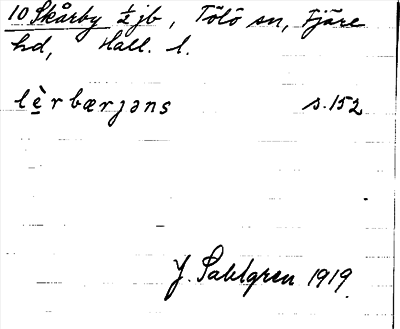 10 Skårby ½ jb, Tölö sn, Fjäre
hd, Hall. l.
lèrbærjəns s. 152
J. Sahlgren 1919